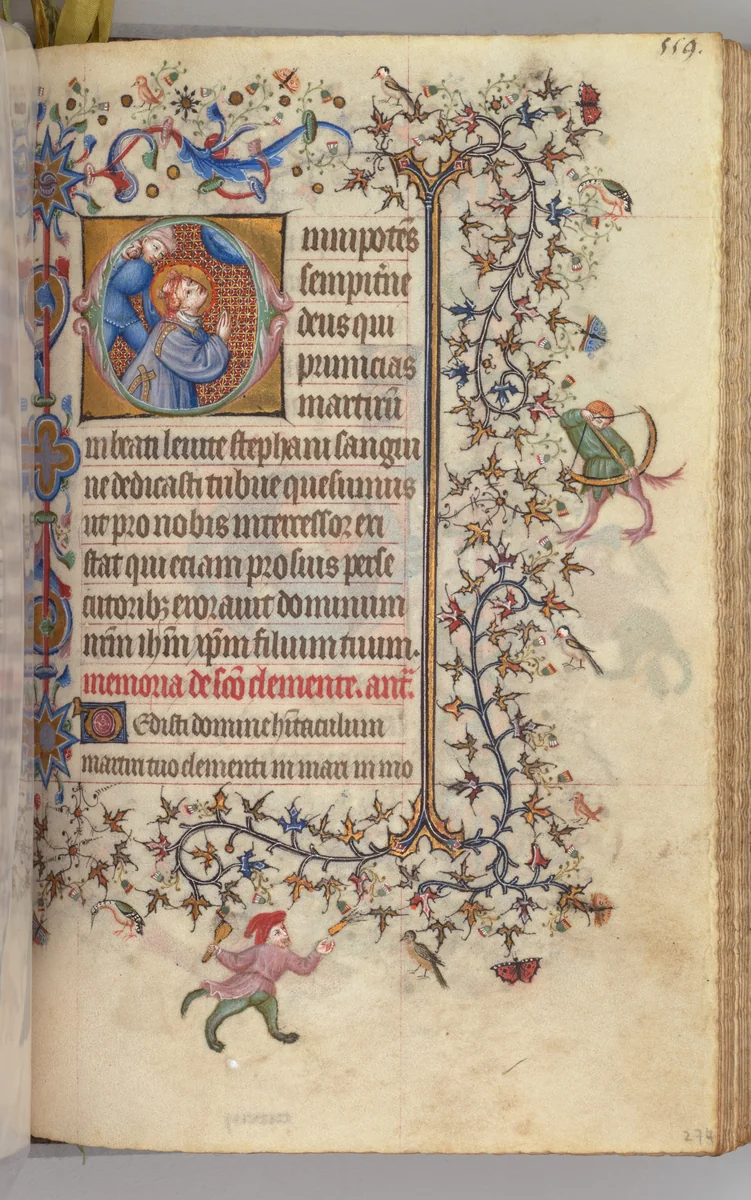 559.
Omnipotẽs
sempit̃ne
deus qui
primicias
martirũ
in beati leuite stephani sangui
ne dedicasti tribue quesumus
ut pro nobis intercessor exi
stat qui eciam pro suis perse
cutoribꝫ exorauit dominum
nr̃m ih̃m xp̃m filium tuum.
memoria de sc̃o clemente. ant̃.
Dedisti domine h̃itaculum
martiri tuo clementi in mari in mo
274